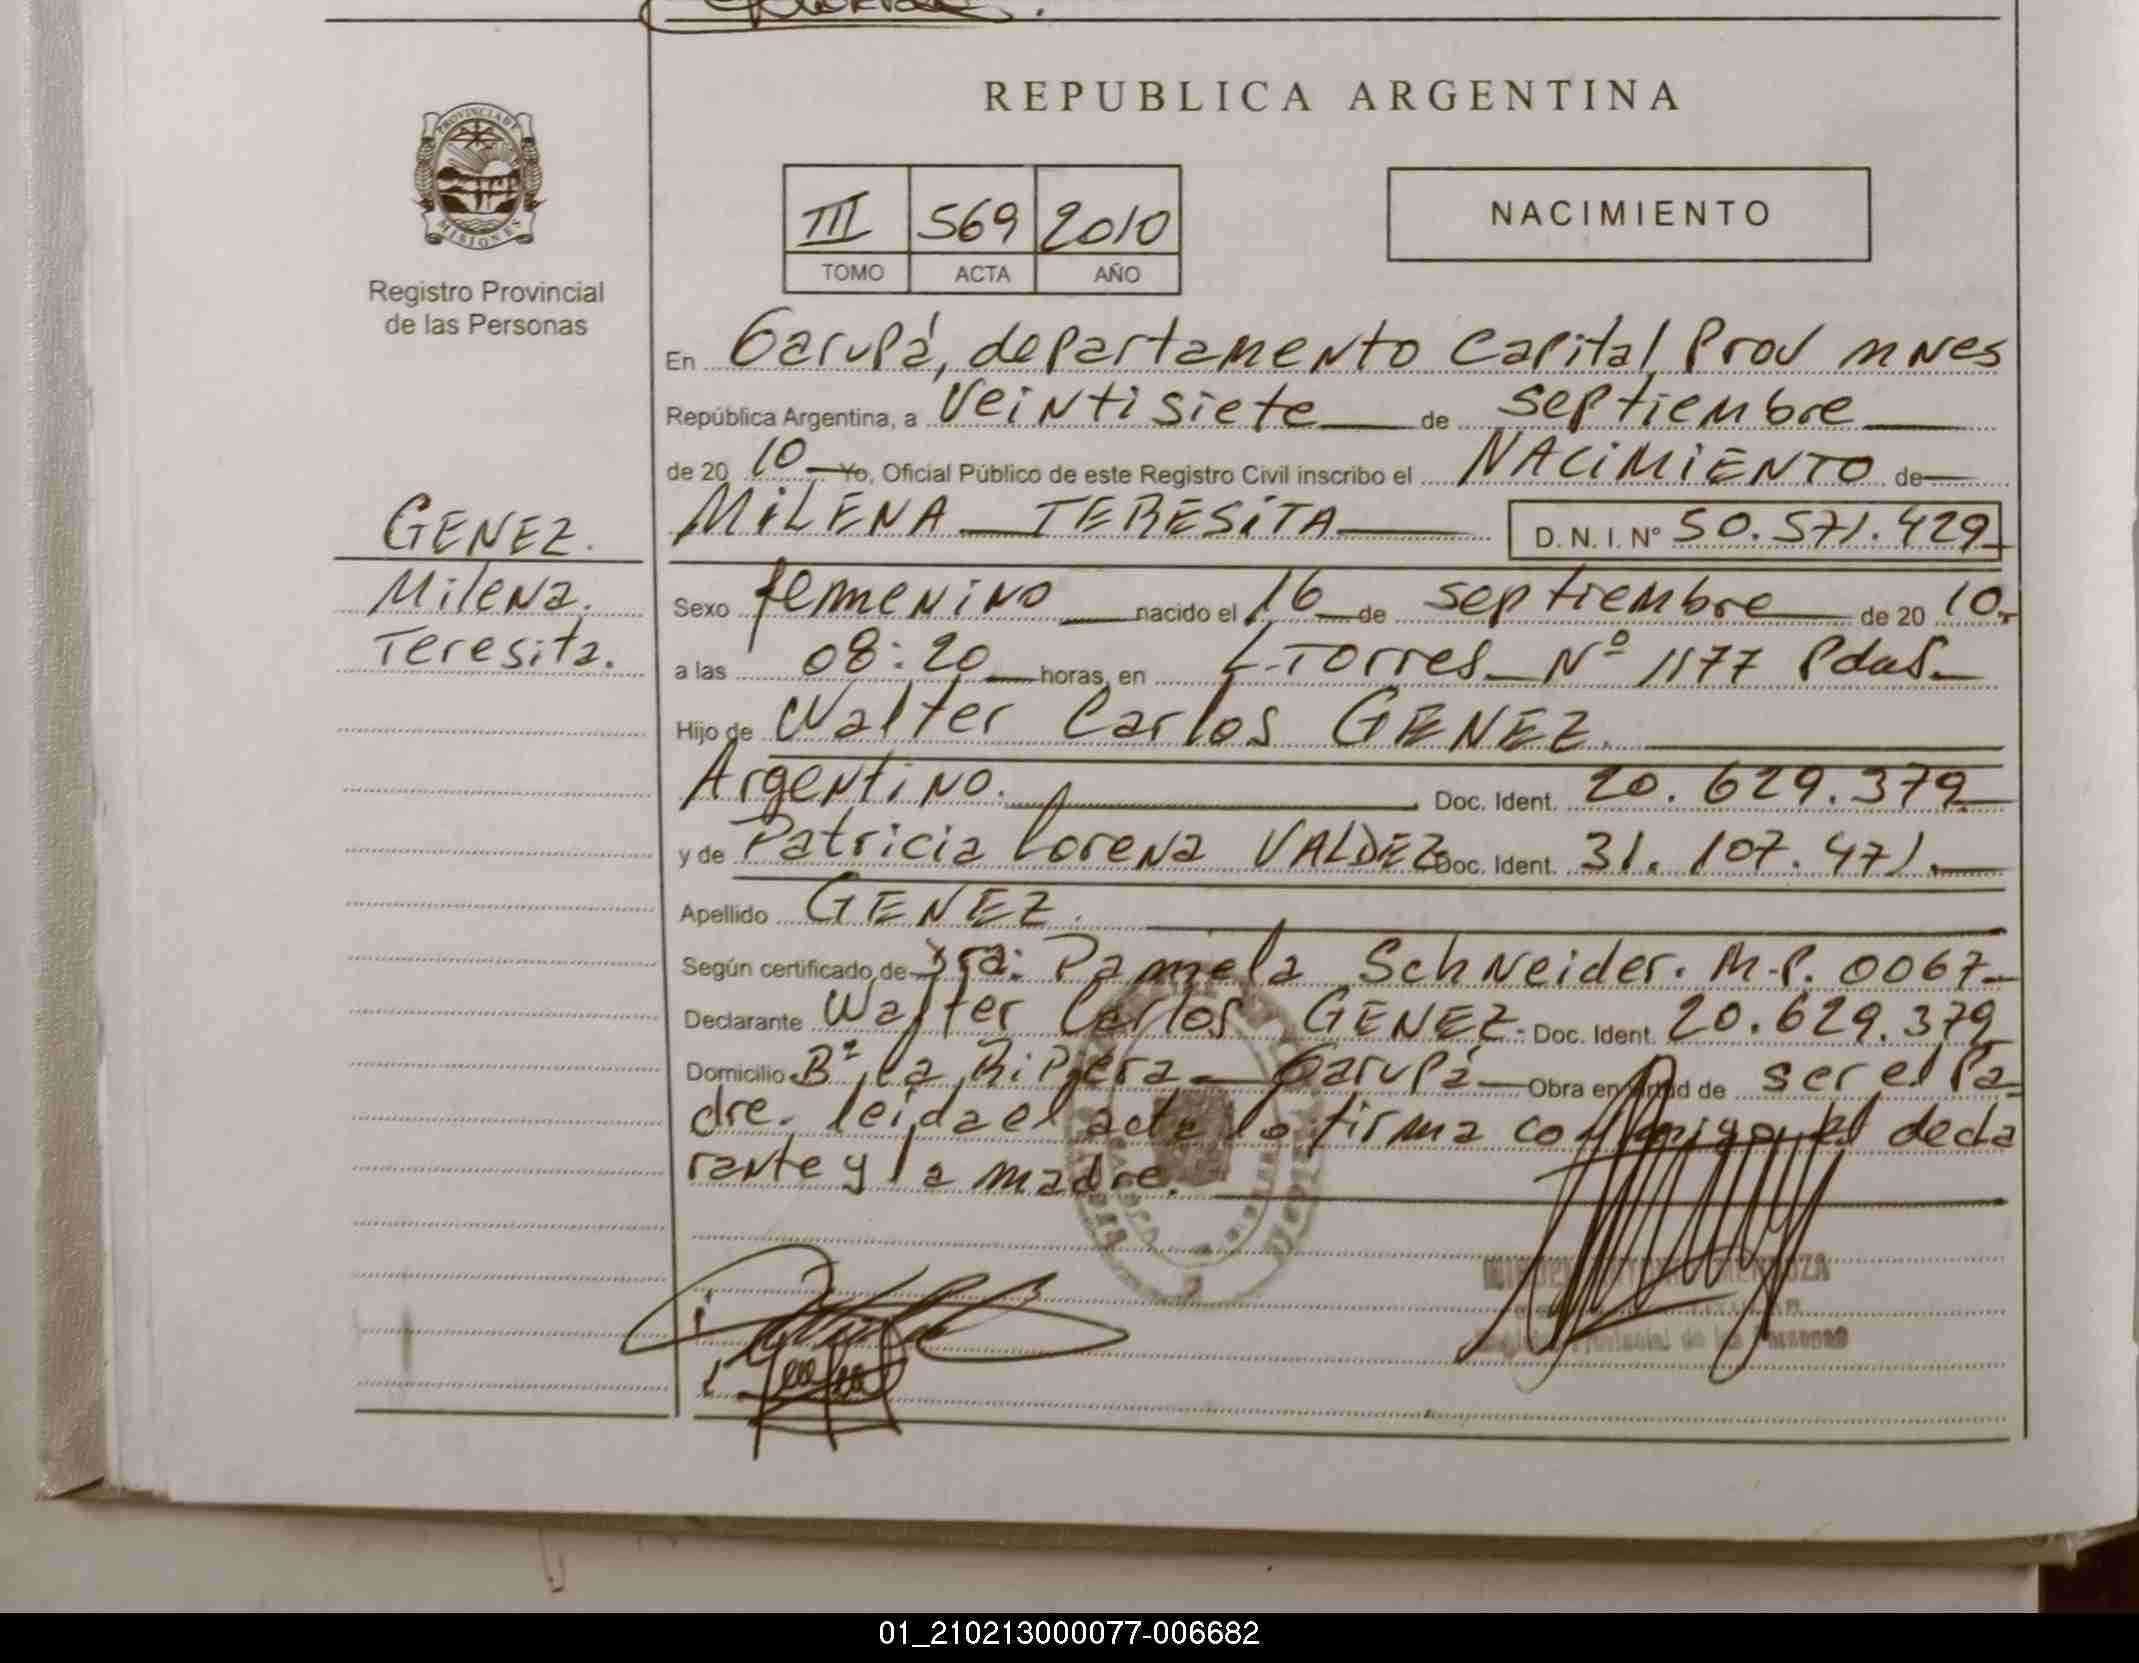 REPUBLICA ARGENTINA
PROVINCIA DE MISIONES
Registro Provincial
de las Personas
III 569 2010
TOMO ACTA AÑO
NACIMIENTO
En Garupá, departamento Capital Prov mnes
República Argentina, a veintisiete de septiembre
de 20 10 Yo, Oficial Público de este Registro Civil inscribo el NACIMIENTO de
GENEZ.
Milena.
Teresita.
MILENA TERESITA D. N. I. Nº 50.571.429
Sexo femenino nacido el 16 de septiembre de 20 10.
a las 08:20 horas, en L. Torres Nº 1177 Pdas.
Hijo de Walter Carlos GENEZ.
Argentino. Doc. Ident. 20.629.379
y de Patricia Lorena VALDEZ Doc. Ident. 31.107.471.
Apellido GENEZ.
Según certificado de Pamela Schneider. M.P. 0067
Declarante Walter Carlos GENEZ. Doc. Ident. 20.629.379
Domicilio Bº La Ribera Garupá Obra en virtud de ser el Pa
dre. leida el acta lo firma conmigo el decla
rante y la madre.
MENDOZA
TITULAR
Registro Provincial de las Personas
01_210213000077-006682